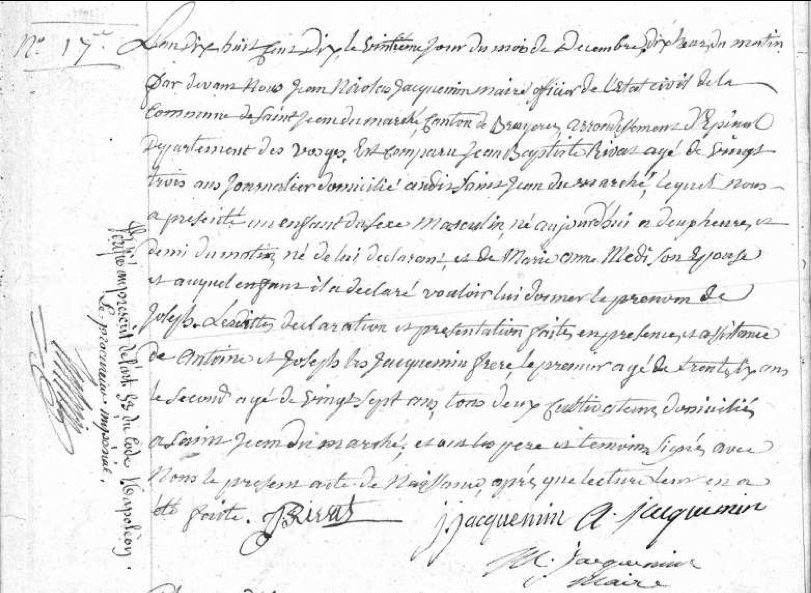 No. 17e
L'an dix huit cent dix, le vintieme jour du mois de decembre, dix heur du matin
par devant Nous Jean Nicolas Jacquemin maire officier de l'etat civil de la
Commune de Saint Jean du marché, Canton de Bruyeres, arrondissement d'Epinal
Departement des vosges, Est comparu Jean Baptiste Rivat agé de vingt
trois ans journalier domicilié audit Saint Jean du marché, lequel nous
a presenté un enfant du sexe Masculin, né aujourd'hui a deux heures et
demi du matin, né de lui declarant, et de Marie anne Medi son Epouse
et auquel enfant il a declaré vouloir lui donner le prenom de
Joseph. Lesdittes declaration et presentation faites en presence et assistance
de Antoine et Joseph les Jacquemin frere, le premier agé de trente six ans
le second agé de vingt sept ans, tous deux Cultivateurs domiciliés
a Saint Jean du marché, et ont les pere et temoins signés avec
Nous le present acte de Naissance, après que lecture leur en a
été faite. JBRivat
j. jacquemin a. jacquemin
N. Jacquemin
Maire
Vérifié au prescrit de l'art. 53 du Code Napoléon.
Le procureur impérial,